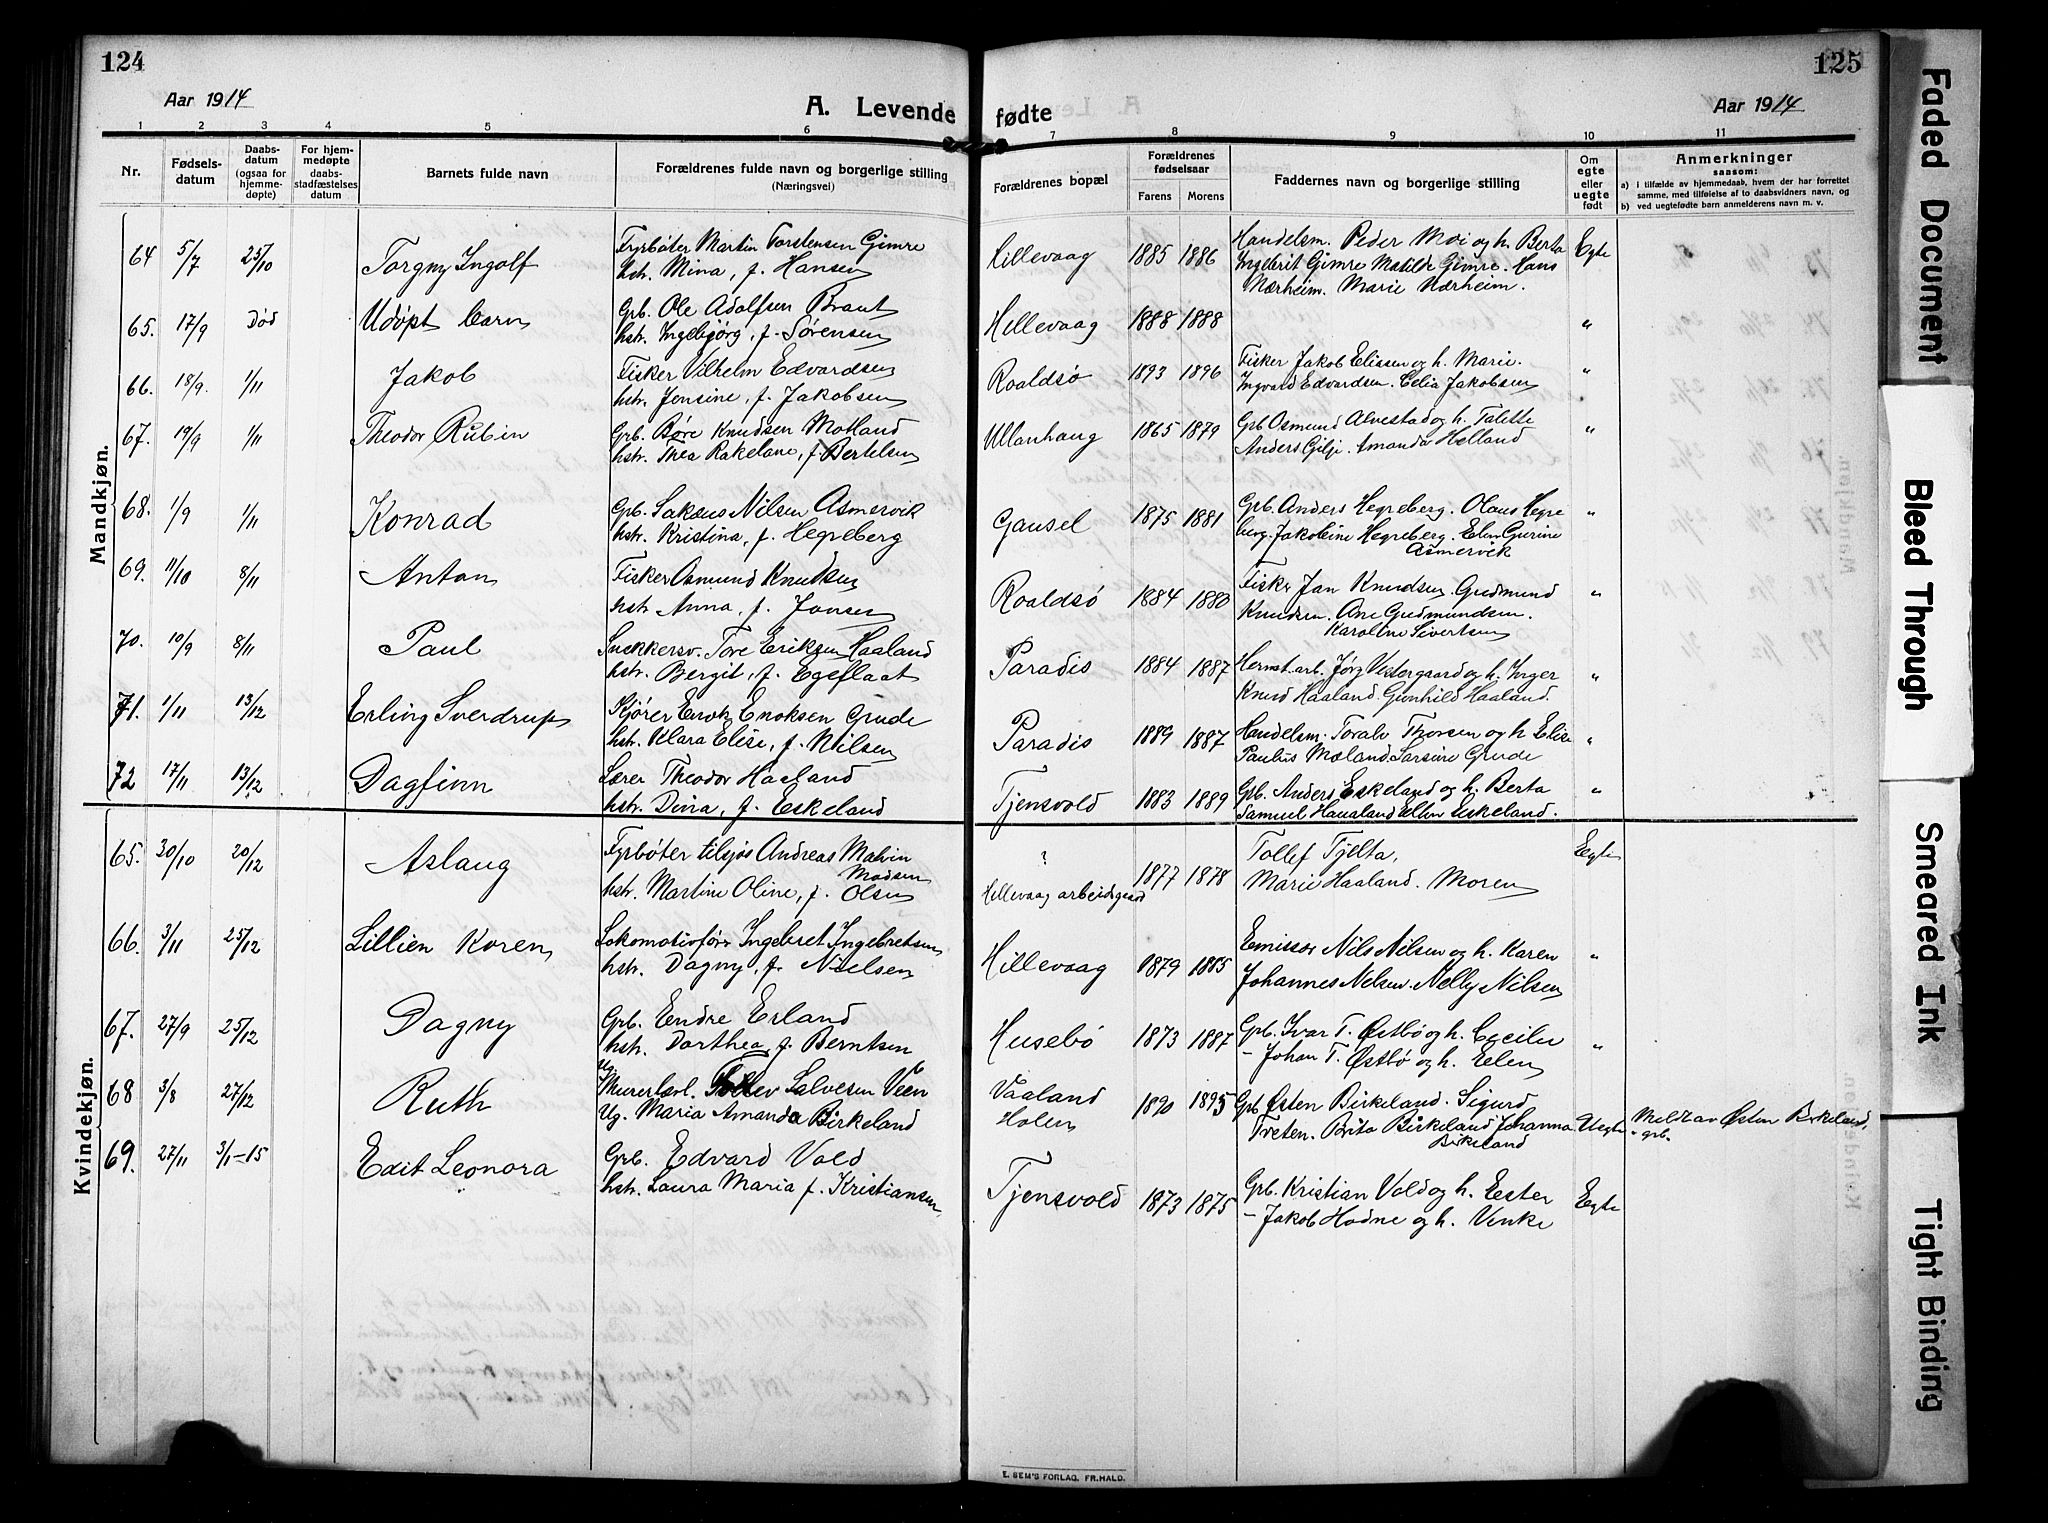 124
Aar 1914
A. Levende
1 2 3 4 5 6
Nr.
Fødsels-
datum
Daabs-
datum
(ogsaa for
hjemme-
døpte)
For hjem-
medøpte
daabs-
stadfæstelses
datum
Barnets fulde navn
Forældrenes fulde navn og borgerlige stilling
(Næringsvei)
Mandkjøn.
64 5/7 25/10 Torgny Ingolf Fyrbøter Martin Torstensen Gimre
hstr. Mina, f. Hansen
65. 17/9 Død Udøpt barn Gpb. Ole Adolfsen Braut
hstr. Ingebjørg, f. Sørensen
66. 18/9. 1/11 Jakob Fisker Vilhelm Edvardsen
hstr. Jensine, f. Jakobsen
67. 19/9 1/11 Theodor Rubin Gpb. Børe Knudsen Motland
hstr. Thea Rakeline, f. Bertelsen
68. 1/9 1/11 Konrad Gpb. Sakeus Nilsen Asmervik
hstr. Kristina, f. Hegreberg
69. 11/10 8/11 Anton Fisker Osmund Knudsen
hstr. Anna, f. Jonsen
70. 10/9 8/11 Paul Snekkersv. Tore Eriksen Haaland
hstr. Bergit, f. Egeflaat
71. 1/11 13/12 Erling Sverdrup Kjører Enok Enoksen Grude
hstr. Klara Elise, f. Nilsen
72 17/11 13/12 Dagfinn Lærer Theodor Haaland
hstr. Dina, f. Eskeland
Kvindekjøn.
65. 30/10 20/12 Aslaug Fyrbøter tilsjøs Andreas Malvin
Madsen
hstr. Martine Oline, f. Olsen
66. 3/11 25/12 Lillien Koren Lokomotivfører Ingebret Ingebretsen
hstr. Dagny, f. Nielsen
67. 27/9 25/12 Dagny Gpb. Endre Erland
hstr. Dorthea f. Berntsen
68 3/8 27/12 Ruth Ug. Murerlærl. Tollev Salvesen Veen
Ug. Maria Amanda Birkeland
69. 27/11 3/1-15 Edit Leonora Gpb. Edvard Vold
hstr. Laura Maria f. Kristiansen
125
fødte
Aar 1914
7 8 9 10 11
Forældrenes bopæl
Forældrenes
fødselsaar
Farens Morens
Faddernes navn og borgerlige stilling
Om
egte
eller
uegte
født
Anmerkninger
saasom:
a) i tilfælde av hjemmedaab, hvem der har forrettet
samme, med tilføielse af to daabsvidners navn, og
b) ved uegtefødte barn anmelderens navn m. v.
Hillevaag 1885 1886 Handelsm. Peder Moi og h. Berta Egte
Ingebrit Gimre Matilde Gimre. Hans
Nærheim. Marie Nærheim.
Hillevaag 1888 1888 "
Roaldsø 1893 1896 Fisker Jakob Elissen og h. Marie. "
Ingvard Edvardsen. Celia Jakobsen
Ullanhaug 1865 1879 Gpb Osmund Alvestad og h. Talette "
Anders Gilje. Amanda Helland
Gausel 1875 1881 Gpb. Anders Hegreberg. Olaus Hegre "
berg. Jakobine Hegreberg. Elen Gurine
Asmervik
Roaldsø 1884 1880 Fisker Jan Knudsen. Gudmund "
Knudsen. Ane Gudmundsen.
Karoline Sivertsen
Paradis 1884 1887 Hermt.arb. Jørg Vestergaard og h. Inger "
Knud Haaland. Gunhild Haaland.
Paradis 1889 1887 Handelsm. Toralv Thorsen og h Elise "
Paulus Moland. Sarsine Grude
Tjensvold 1883 1889 Gpb. Anders Eskeland og h. Berta "
Samuel Haualand Ellen Eskeland.
?
Hillevaag arbeidsgaard 1877 1878 Tollef Tjelta, Egte
Marie Haaland. Moren
Hillevaag 1879 1885 Emissær Nils Nilsen og h. Karen "
Johannes Nilsen. Nelly Nilsen
Husebø 1873 1887 Gpb. Ivar T. Østbø og h. Cecilie "
– Johan T. Østbø og h. Elen
Vaaland
Holen 1890 1895 Gpb Østen Birkeland. Sigurd
Treten. Brita Birkeland Johanna Uegte Meldt av Østen Birkeland,
Birkeland gpb.
Tjensvold 1873 1875 Gpb. Kristian Vold og h. Ester Egte
– Jakob Hodne og h. Venke
E. SEM'S FORLAG, FR.HALD.
Faded Document
Bleed Through
Smeared Ink
Tight Binding